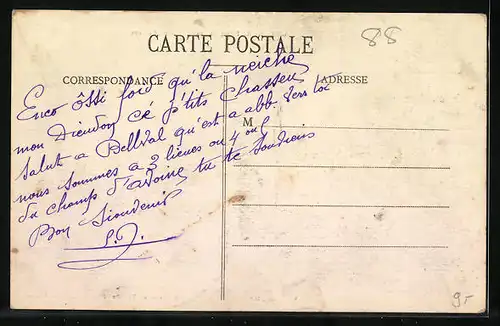 88
CARTE POSTALE
CORRESPONDANCE
ADRESSE
M
Enco ôssi foid qu'la neiche
mon Dieudon cé p'tits Chasseu
Salut a Bellval qu'est a abb. vers toi
nous sommes a 3 lieues ou 4 ou 5
du champ d'avoine tu te soudiens
Bon Sioudenir
9-